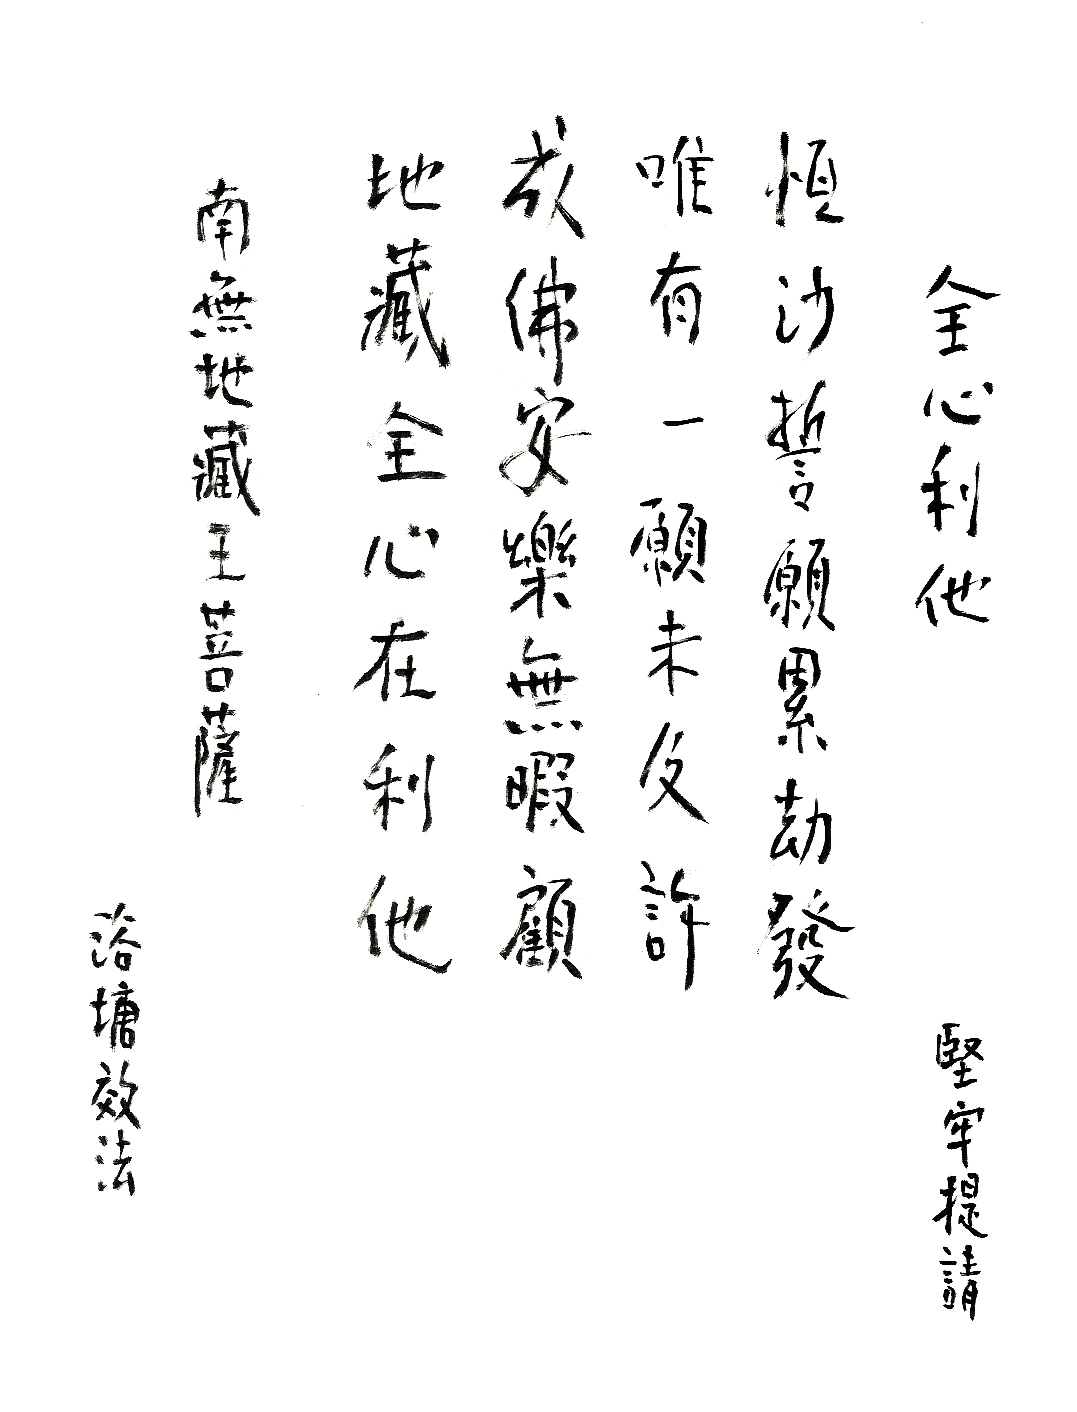 全心利他
堅牢提請
恒沙誓願累劫發
唯有一願未及許
成佛安樂無暇顧
地藏全心在利他
南無地藏王菩薩
浴塘效法